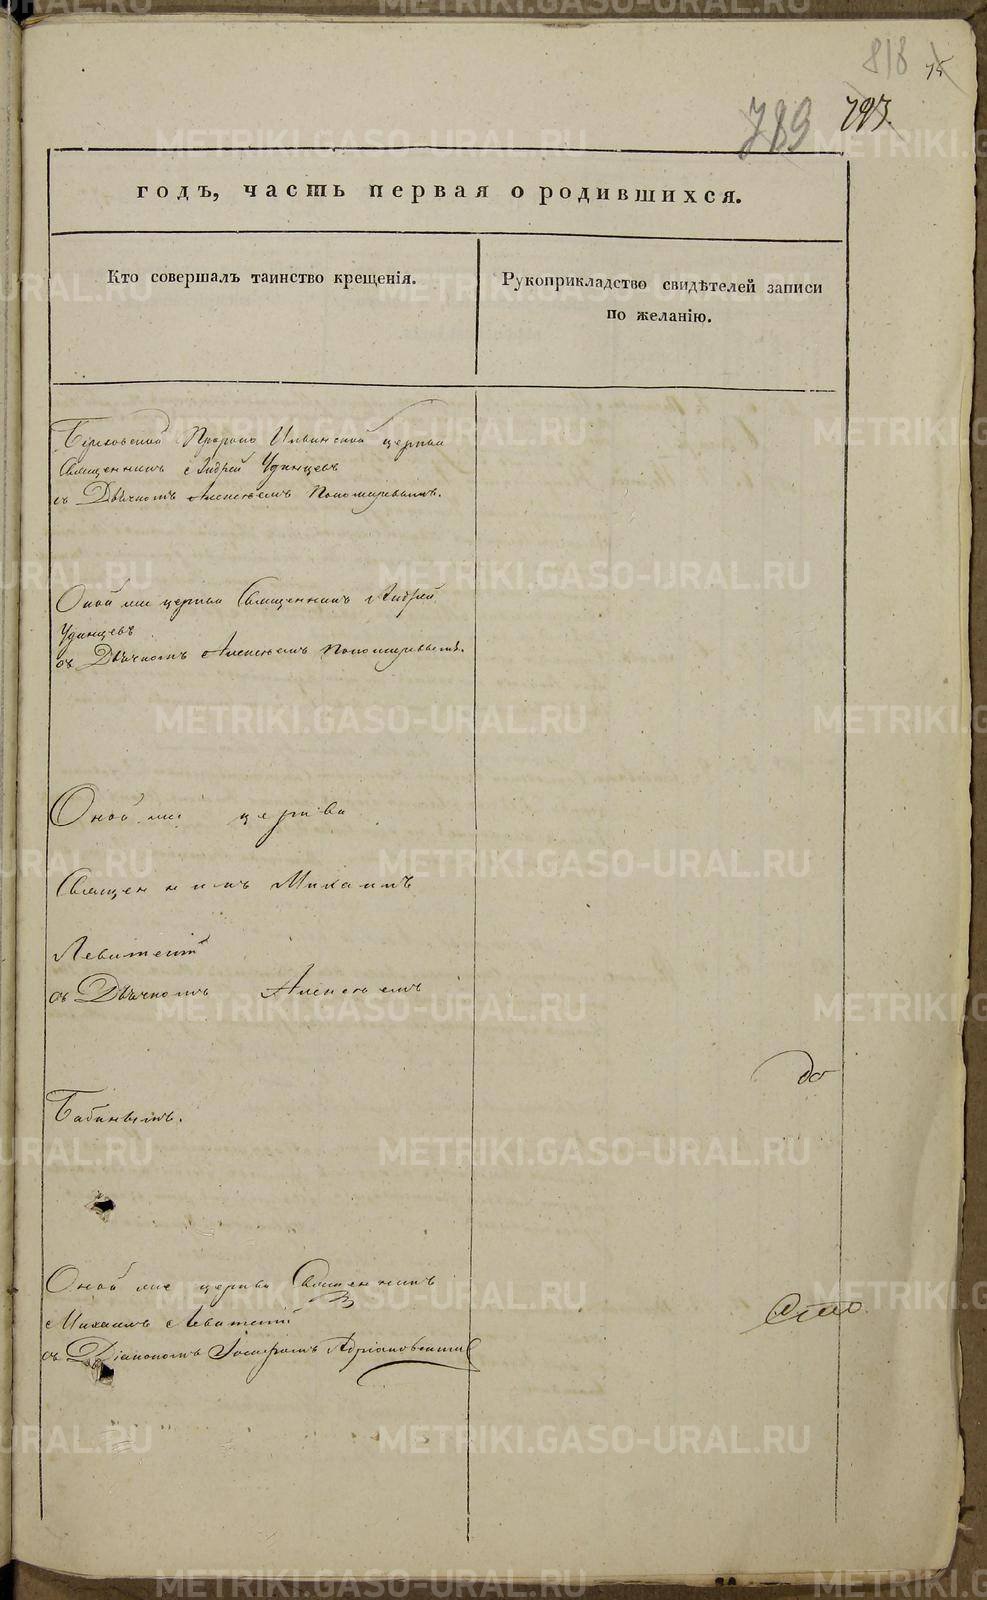 818 75
789 793.
годъ, часть первая о родившихся.
Кто совершалъ таинство крещенія.
Рукоприкладство свидѣтелей записи
по желанію.
Пророко Ильинской церкви
Священникъ Андрей Удинцевъ
съ Дьячкомъ Алексѣемъ Пономаревымъ.
Оной же церкви Священникъ Андрей
Удинцевъ
съ Дьячкомъ Алексѣемъ Пономаревымъ.
Оной же церкви
Священникъ Михаилъ
Левитскій
съ Дьячкомъ Алексѣемъ
до
Бабинымъ.
Оной же церкви Священникъ
Михаилъ Левитскій
съ Діакономъ Іосифомъ Адріановскимъ
METRIKI.GASO-URAL.RU